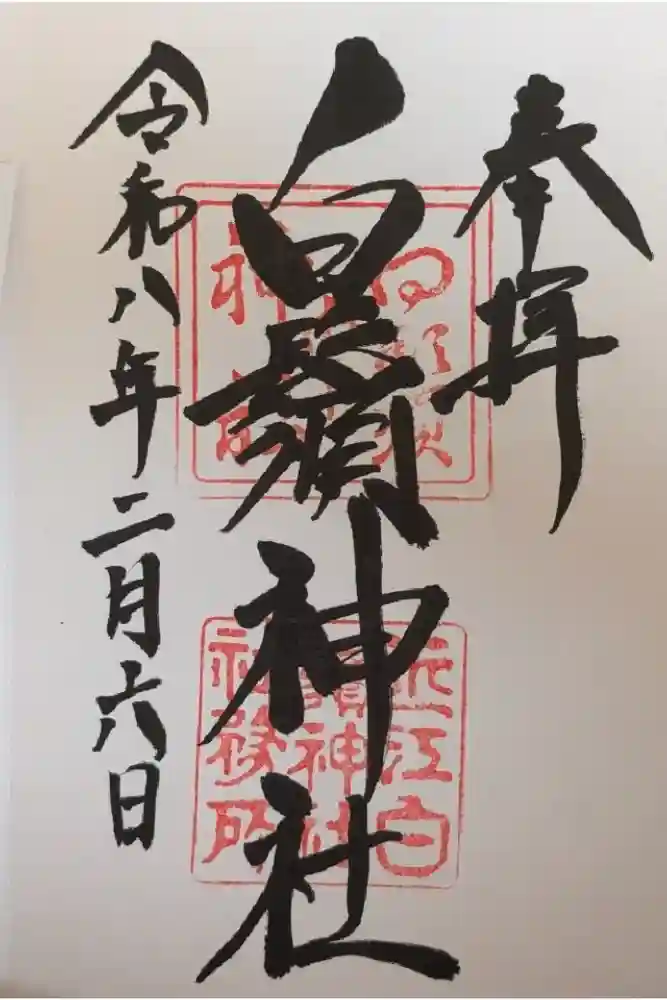 奉拝
白鬚神社
近江白
鬚神社
社務所
令和八年二月六日